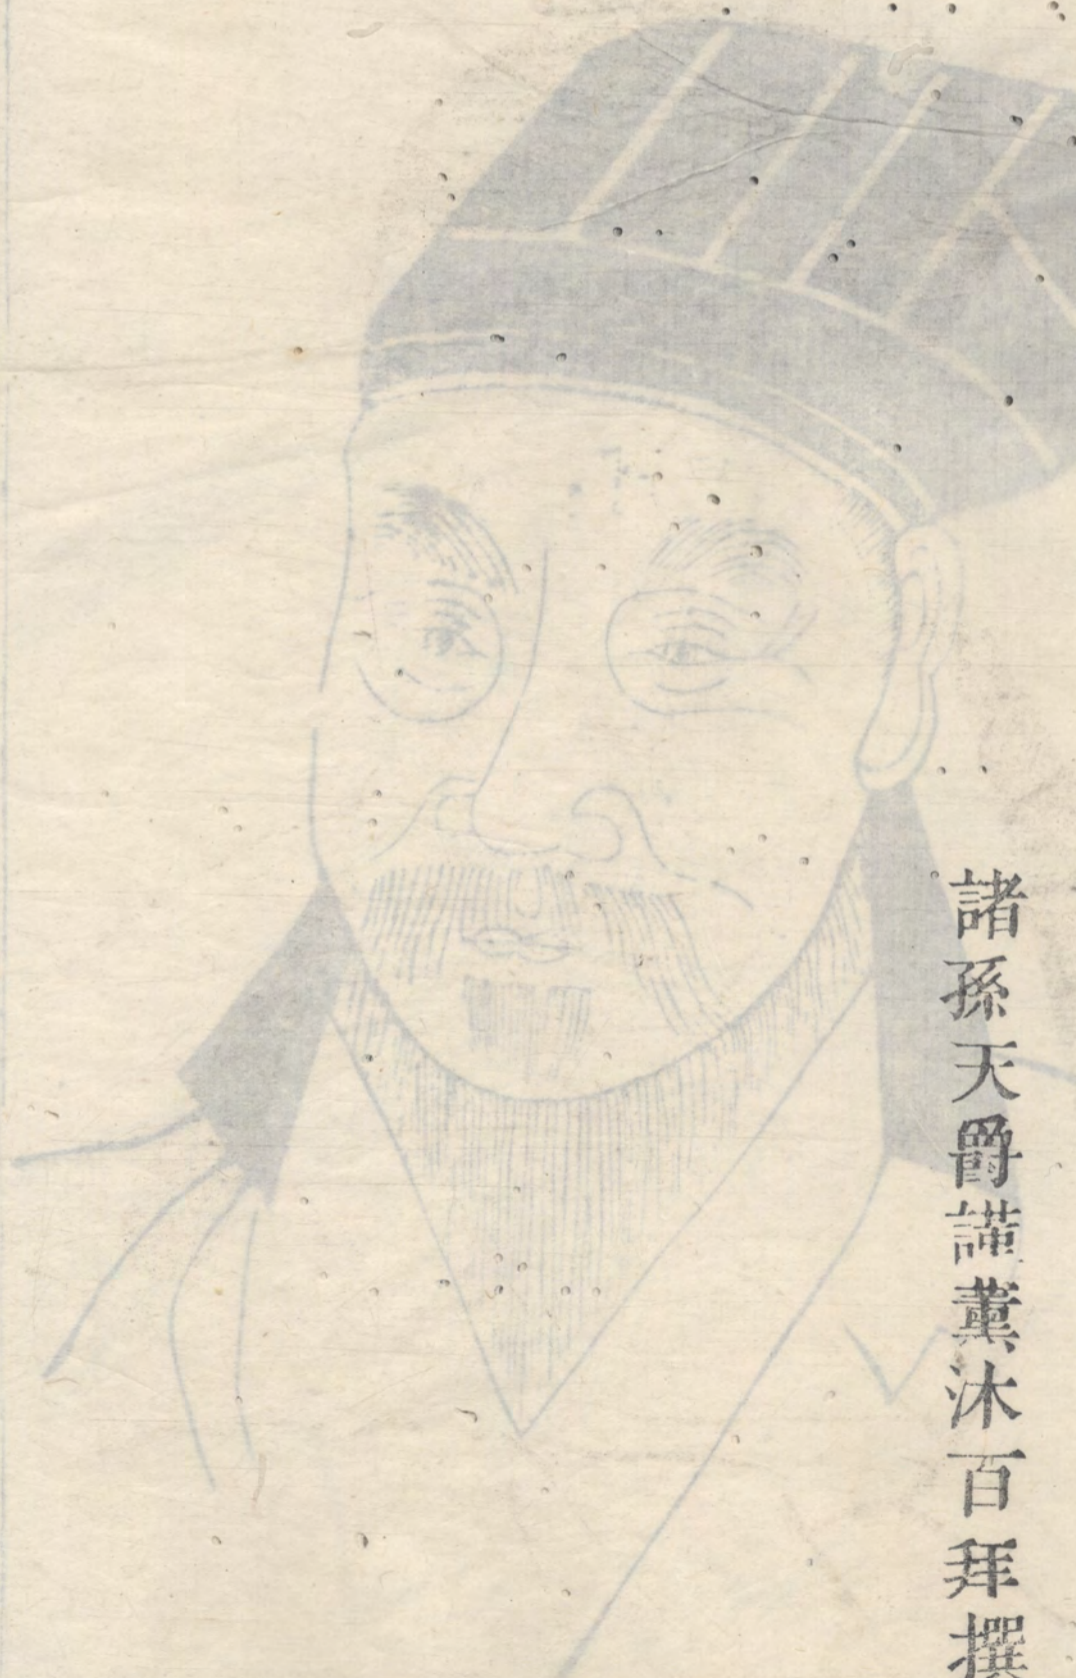 諸孫天爵謹薰沐百拜撰